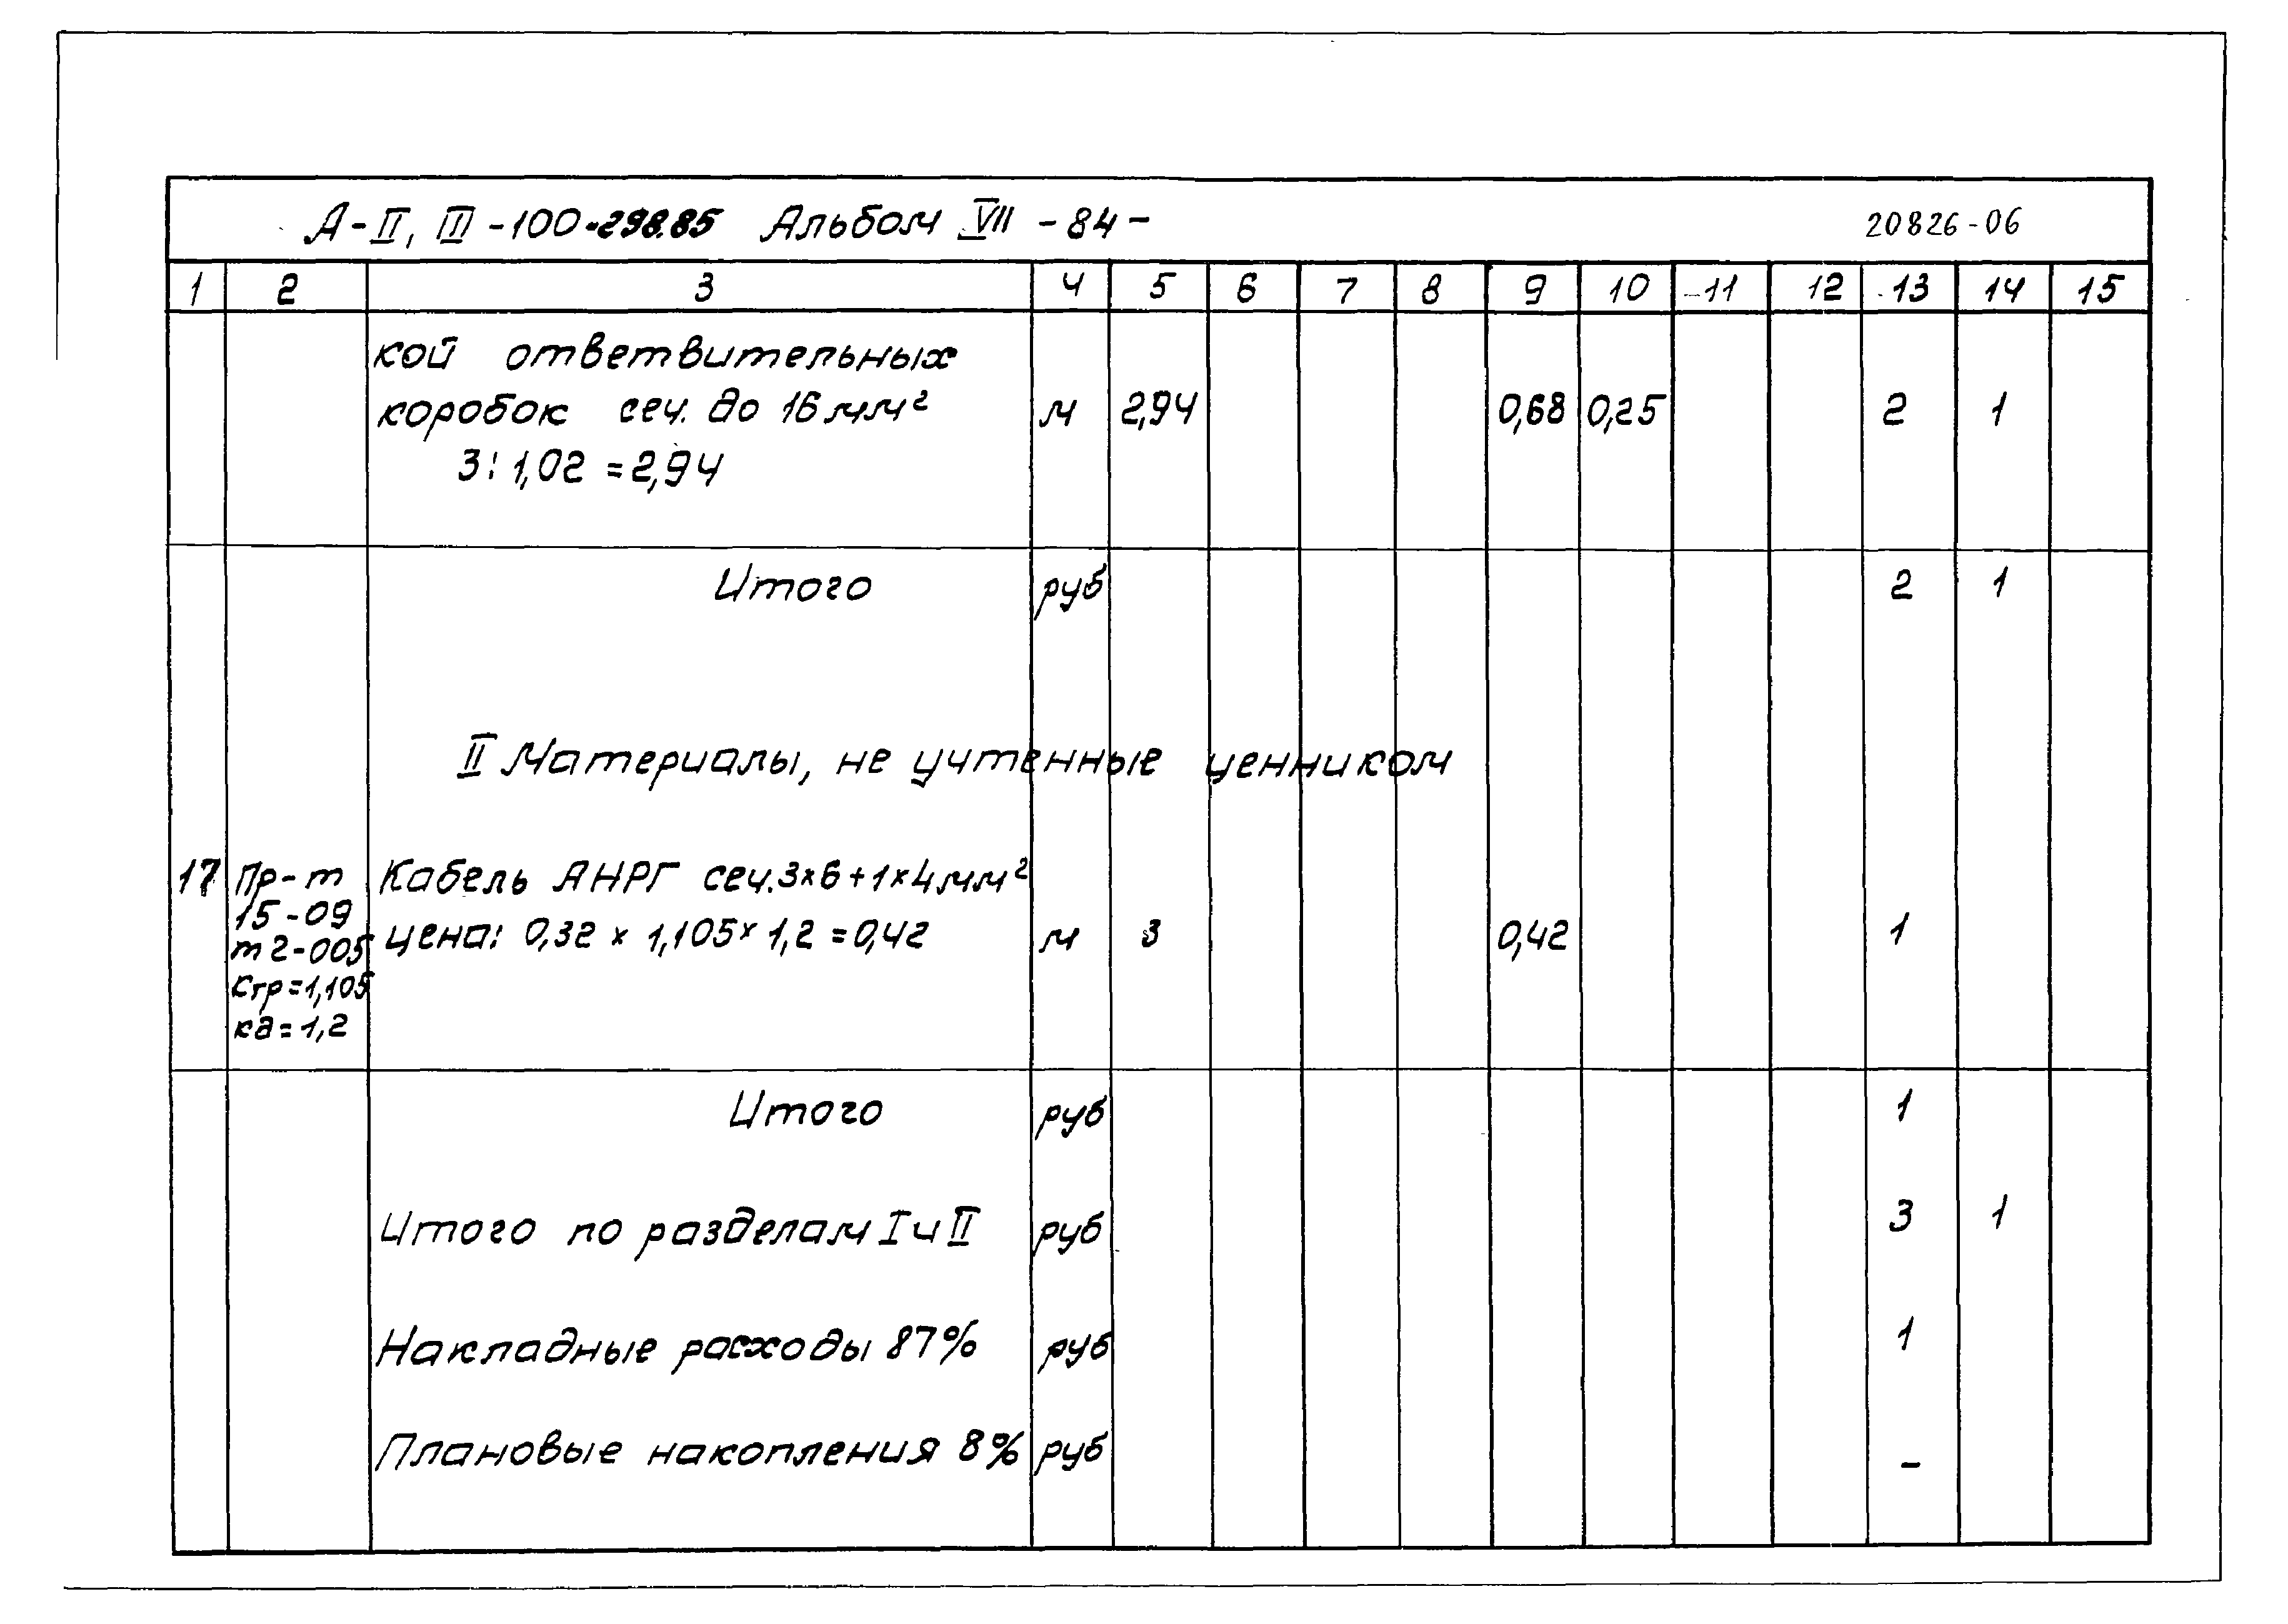 А-II, III-100-298.85 Альбом VII -84- 20826-06
1 2 3 4 5 6 7 8 9 10 11 12 13 14 15
кой ответвительных
коробок сеч. до 16 мм² м 2,94 0,68 0,25 2 1
3:1,02=2,94
Итого руб 2 1
II Материалы, не учтенные ценником
17 Пр-т Кабель АНРГ сеч.3×6+1×4мм²
15-09
цена: 0,32 × 1,105 × 1,2 = 0,42 м 3 0,42 1
т2-005
Стр=1,105
кд=1,2
Итого руб 1
Итого по разделам I и II руб 3 1
Накладные расходы 87% руб 1
Плановые накопления 8% руб -